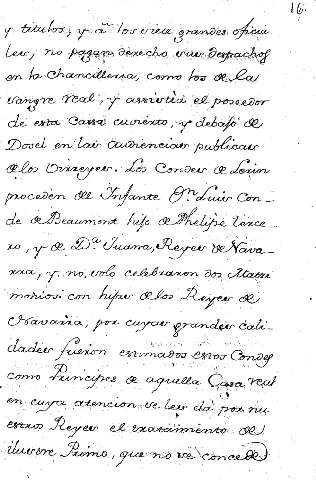 16.
y titulos, y a los siete grandes oficia
les, no pagan derecho sus despachos
en la Chancilleria, como los de la
sangre real, y assistia el poseedor
de esta Cassa cuvierto, y debajo de
Dosel en las audiencias publicas
de los Virreyes. Los Condes de Lerin
proceden de Infante Dn. Luis Con-
de de Beaumont hijo de Phelipe terce-
ro, y de Da. Juana, Reyes de Nava-
rra, y no solo celebraron dos Matri
monios con hijas de los Reyes de
Navarra, por cuyas grandes cali
dades fueron estimados estos Condes
como Principes de aquella Casa real
en cuya atencion se les dá por nu
estros Reyes el tratamiento de
ilustre Primo, que no se concede